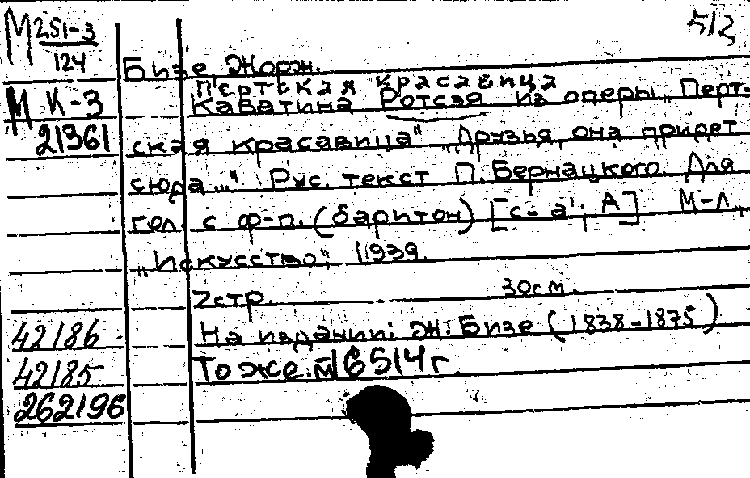 М 251-3
124
512
Бизе Жорж.
Пертская красавица
М К-3
Каватина Ротсая из оперы „Перт-
21361
ская красавица" „Друзья, она придет
сюда..." Рус. текст П. Бернацкого. Для
гол. с ф-п. (баритон) [c-a'; A] М-Л.,
„Искусство", 1939.
7стр. 30см.
42186
На издании: Ж. Бизе (1838-1875)
42185
То же. м16514г
262196